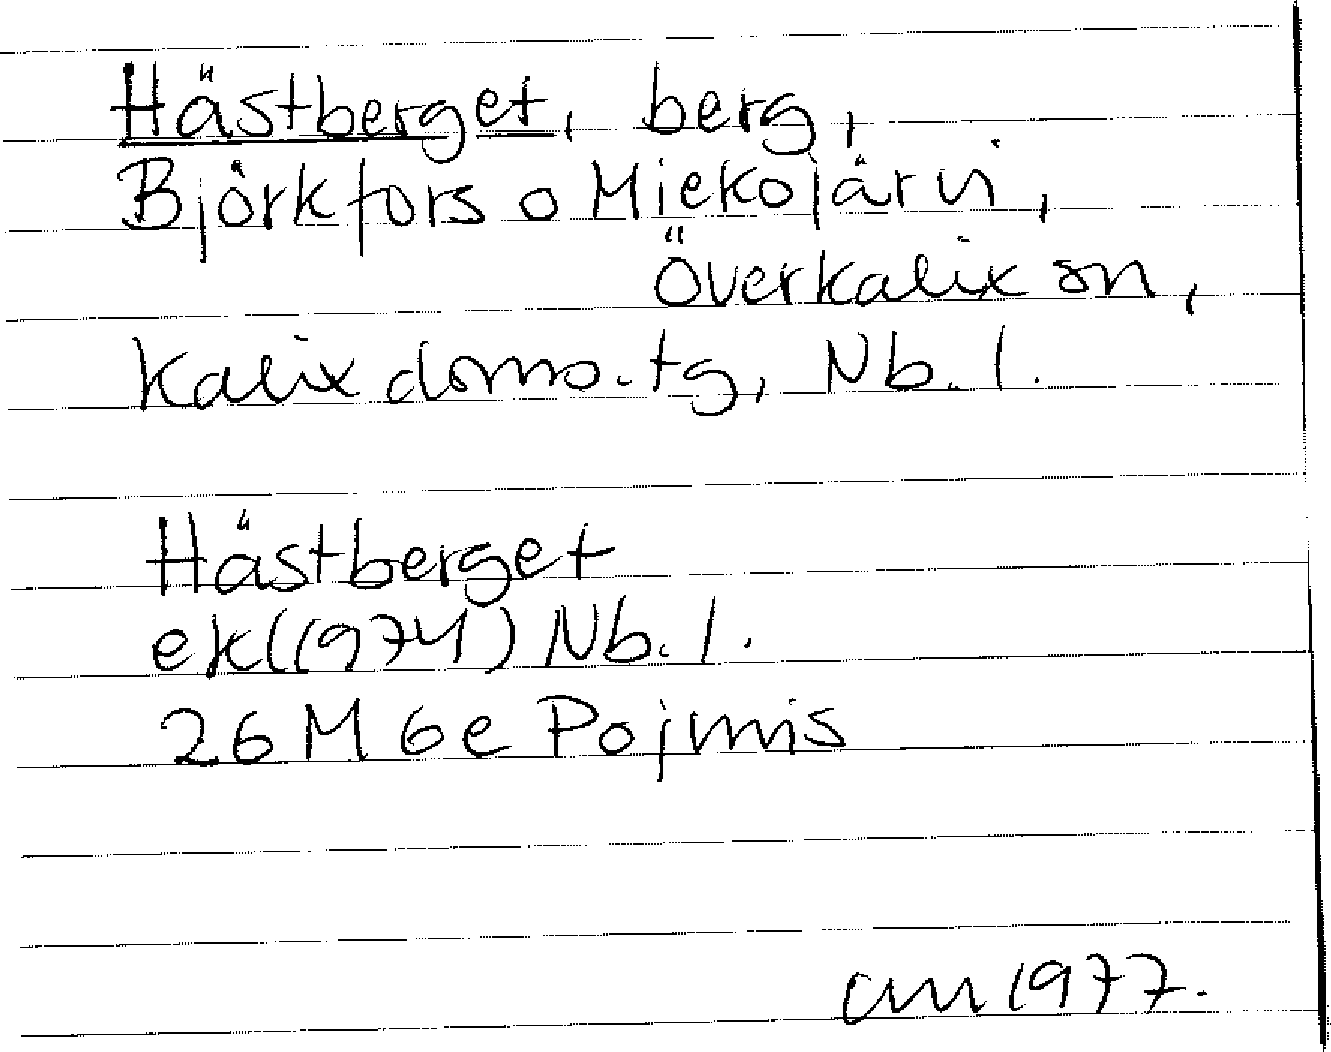 Hästberget, berg,
Björkfors o Miekojärvi,
Överkalix sn,
Kalix doms.tg, Nb. l.
Hästberget
ek (1974) Nb. l.
26 M 6e Pojmis
1977.